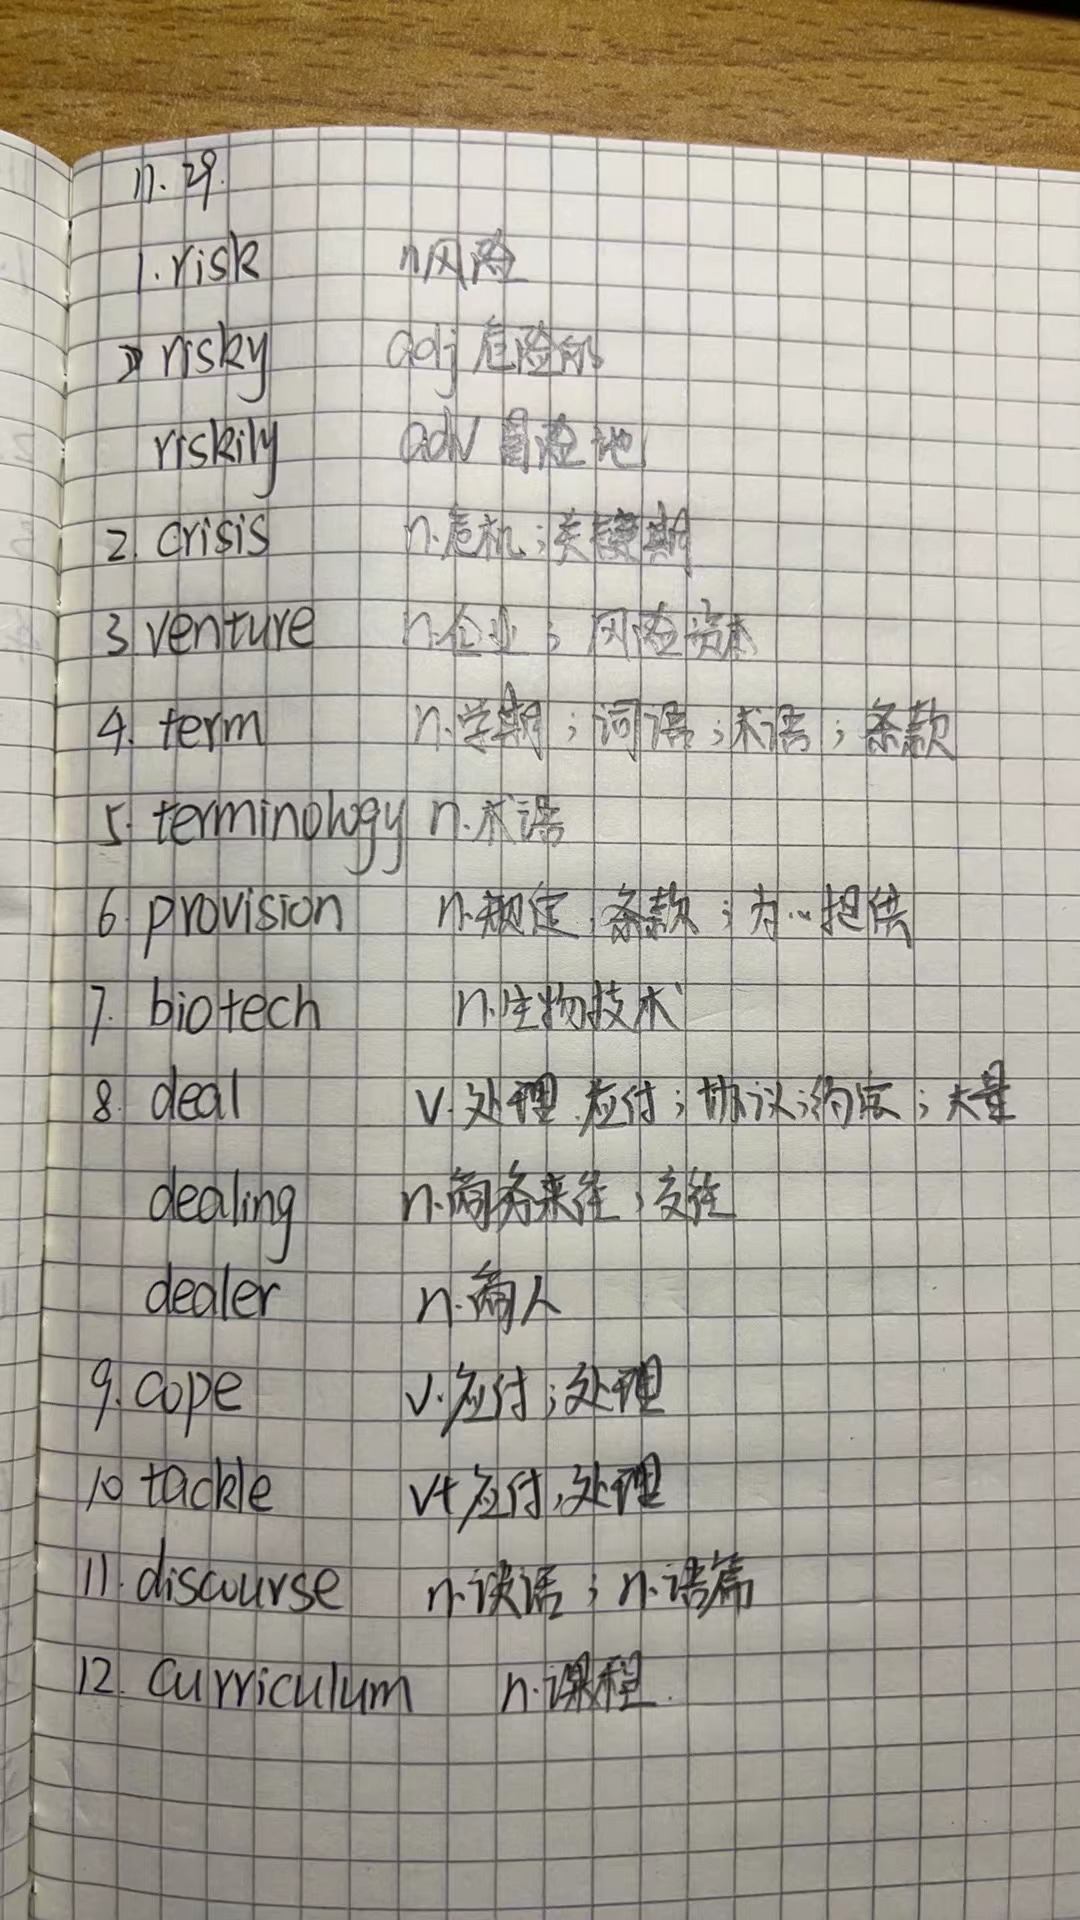 11.29.
1. risk n风险
risky adj 危险的
riskily adv 冒险地
2. crisis n.危机;关键期
3 venture n.企业;风险资本
4. term n.学期;词语;术语;条款
5. terminology n.术语
6. provision n.规定,条款;为…提供
7. biotech n.生物技术
8. deal v.处理.应付;协议;约定;大量
dealing n.商务来往;交往
dealer n.商人
9. cope v.应付;处理
10 tackle vt应付,处理
11. discourse n.谈话;n.语篇
12. curriculum n.课程.